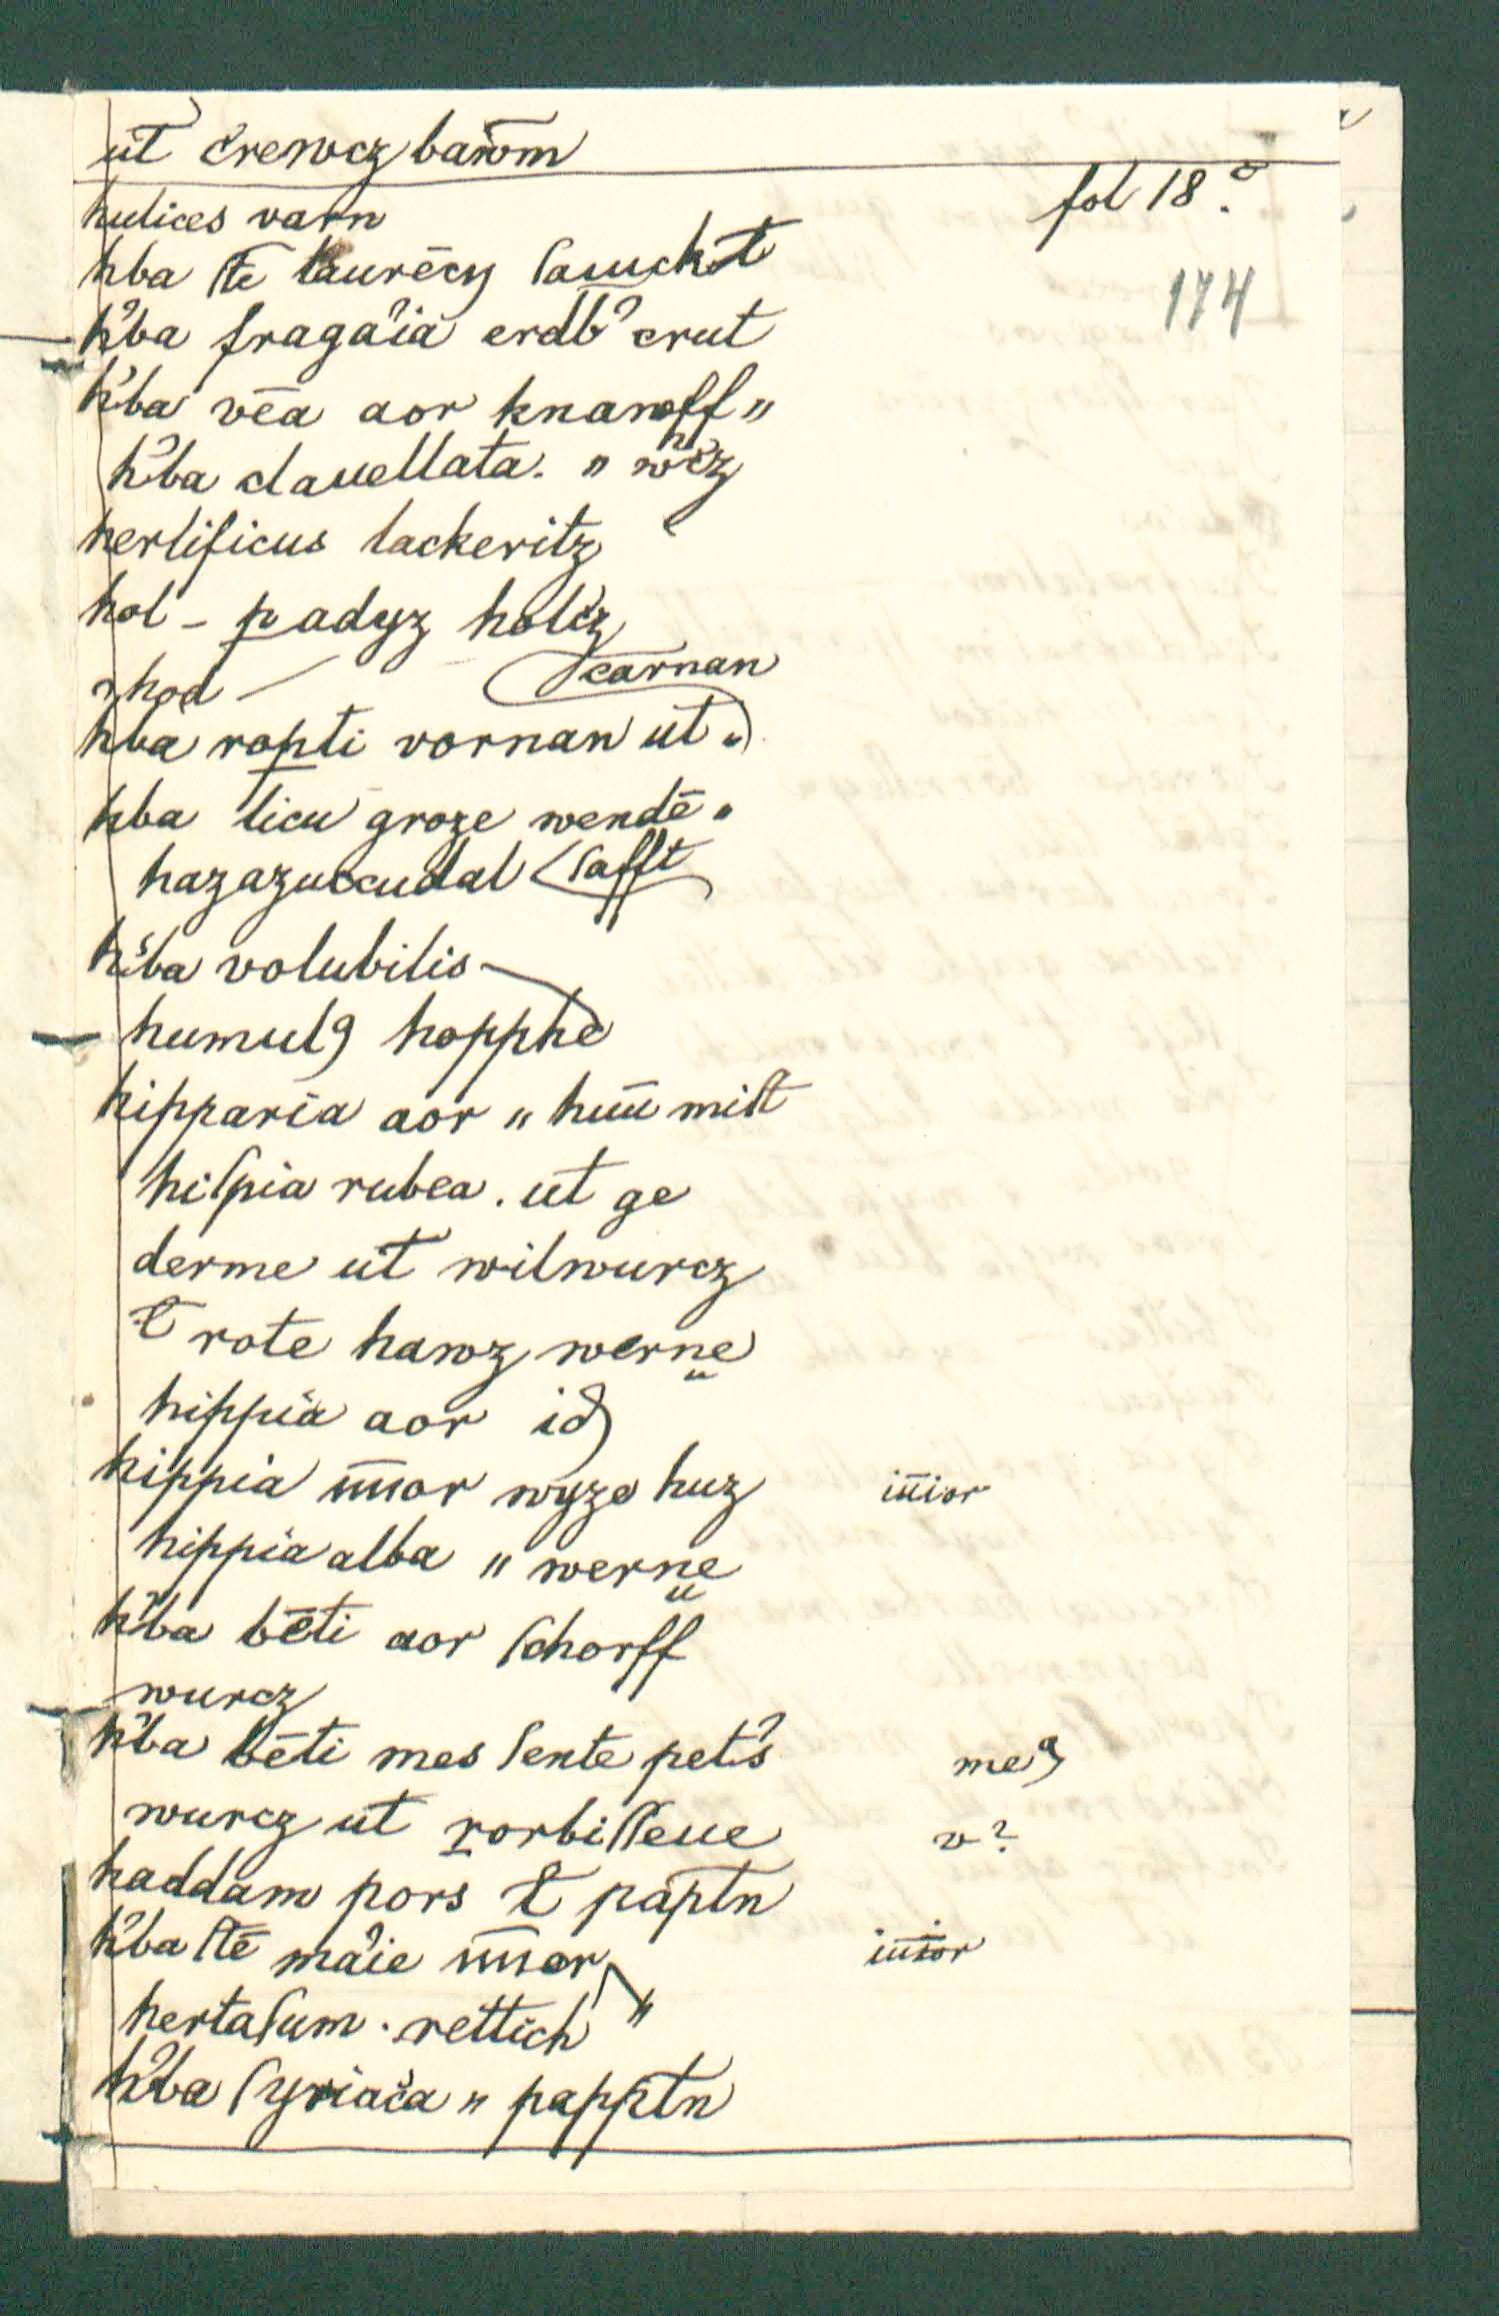 ut crewcz bawm
fol 18 c.
hulices varn
174
hba ste laurēcy sauckt
h̓ba fraga̓ia erdb̓ crut
h̓ba vēa aor knanoff "
h̓ba clauellata. " wrcz
herlificus lackeritz
hol - padyz holcz
hod —
carnan
hba ropti vornan ut "
hba licu groze wendē "
hazazuccudal safft
h̓ba volubilis
humulꝰ hopphe
hipparia aor " hūū mist
hispia rubea. ut ge
derme ut wilwurcz
ł rote hawz werne
hippia aor id
hippia īīīor wyze huz
iūior
hippia alba " werne
h̓ba bēti aor schorff
wurcz
h̓ba bēti mes sente pet̓s
meꝰ
wurcz ut rorbisseue
v?
haddam pors ł paptn
h̓ba stē ma̓ie ūūor
iūior
hertasum. rettich "
h̓ba syriaca " papptn